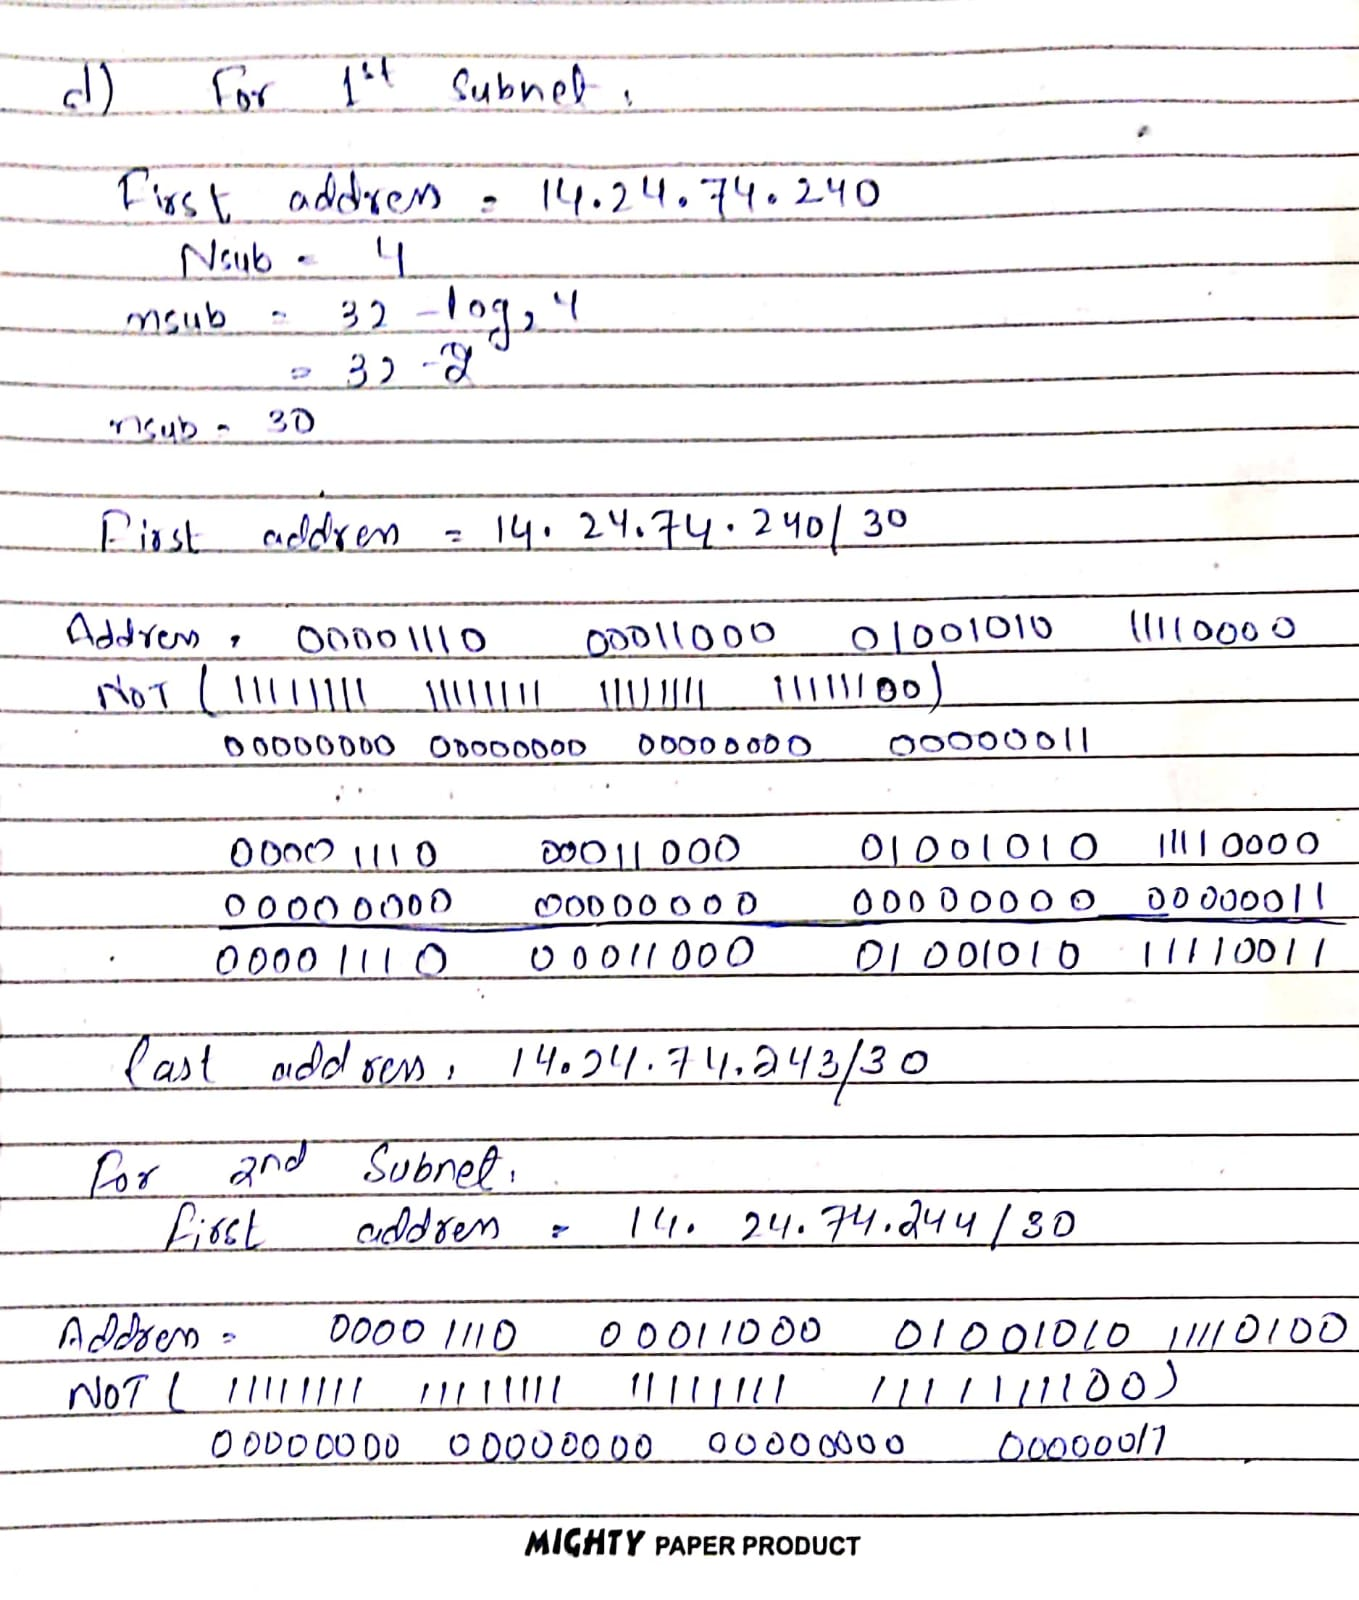 d) For 1st Subnet,
First address = 14.24.74.240
Nsub = 4
nsub = 32 - log₂4
= 32 - 2
nsub = 30
First address = 14.24.74.240/30
Address = 00001110 00011000 01001010 11110000
NOT (11111111 11111111 11111111 11111100)
00000000 00000000 00000000 00000011
00001110 00011000 01001010 11110000
00000000 00000000 00000000 00000011
00001110 00011000 01001010 11110011
last address, 14.24.74.243/30
For 2nd Subnet,
first address = 14.24.74.244/30
Address = 00001110 00011000 01001010 11110100
NOT (11111111 11111111 11111111 1111111100)
00000000 00000000 00000000 00000011
MIGHTY PAPER PRODUCT